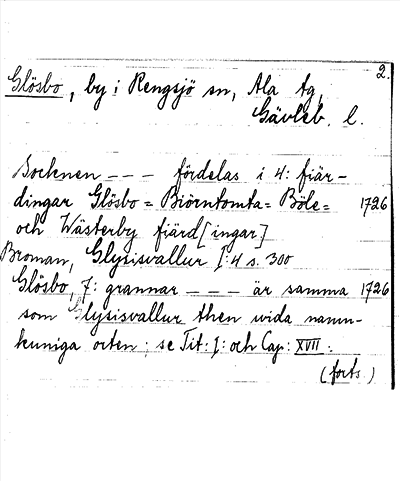 2.
Glösbo, by i Rengsjö sn, Ala tg,
Gävleb. l.
Socknen - - - fördelas i 4: fiär-
dingar Glösbo = Biörntomta = Böle = 1726
och Wästerby fiärd[ingar]
Broman, Glysisvallur I:4 s. 300
Glösbo, 7: grannar - - - är samma 1726
som Glysisvallur then wida namn-
kuniga orten; se Tit: I: och Cap: XVII:
(forts.)